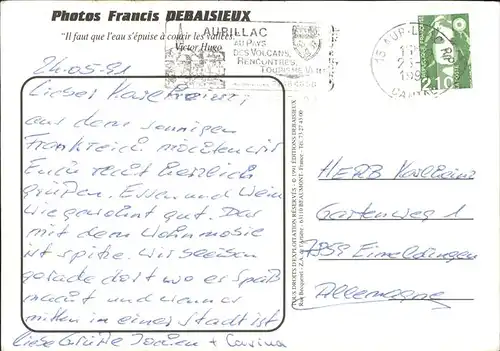 Photos Francis DEBAISIEUX
"Il faut que l'eau s'épuise à courir les vallées."
Victor Hugo
AURILLAC
AU PAYS
DES VOLCANS,
RENCONTRES,
TOURISME VERT
15 AUR
2,10
24.05.91
Lieber Karlheinz,
aus dem sonnigen
Frankreich möchten wir
Euch recht herzlich
grüßen. Essen und Wein
wie gewohnt gut. Das
mit dem Wohnmobie
ist spitze. Wir
gerade dort wo es Spaß
macht und wenn es
mitten in einer Stadt ist
liebe Grüße + Carina
TOUS DROITS D'EXPLOITATION RÉSERVÉS - © 1991 EDITIONS DEBAISIEUX
63110 BEAUMONT - France - Tél. 73 27 43 00
HERB Karlheinz
Gartenweg 1
7859 Eimeldingen
Allemagne